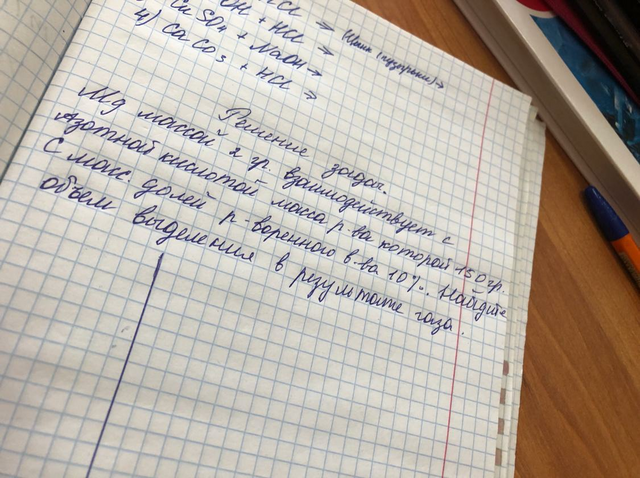 OH + HCl →
CuSO4 + NaOH →
4) CaCO3 + HCl →
Решение задач.
Mg массой 2 гр. взаимодействует с
Азотной кислотой масса р-ва которой 150 гр.
С масс долей р-воренного в-ва 10%. Найдите
объем выделения в результате газа.